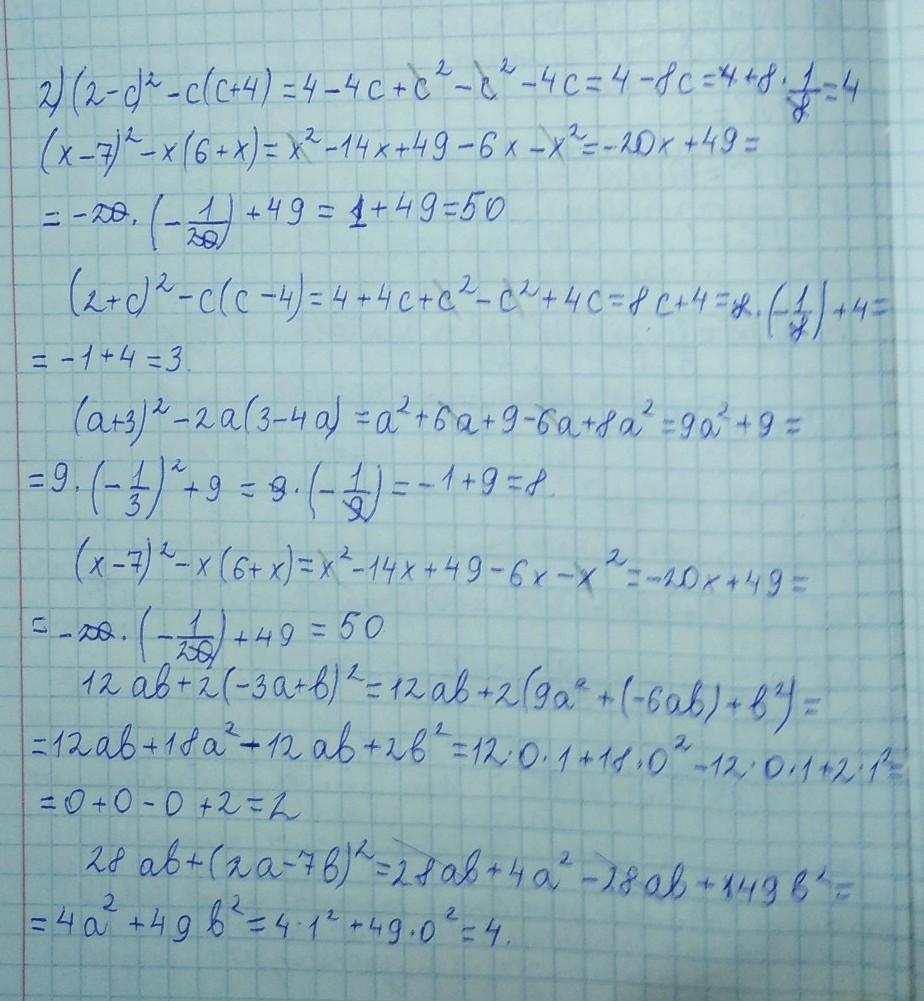 2) (2-c)² - c(c+4) = 4 - 4c + c² - c² - 4c = 4 - 8c = 4 + 8 · 1/8 = 4
(x-7)² - x(6+x) = x² - 14x + 49 - 6x - x² = -20x + 49 =
= -20 · (-1/20) + 49 = 1 + 49 = 50
(2+c)² - c(c-4) = 4 + 4c + c² - c² + 4c = 8c + 4 = 8 · (-1/8) + 4 =
= -1 + 4 = 3.
(a+3)² - 2a(3-4a) = a² + 6a + 9 - 6a + 8a² = 9a² + 9 =
= 9 · (-1/3)² + 9 = 9 · (-1/9) = -1 + 9 = 8.
(x-7)² - x(6+x) = x² - 14x + 49 - 6x - x² = -20x + 49 =
= -20 · (-1/20) + 49 = 50
12ab + 2(-3a+b)² = 12ab + 2(9a² + (-6ab) + b²) =
= 12ab + 18a² - 12ab + 2b² = 12·0·1 + 18·0² - 12·0·1 + 2·1² =
= 0 + 0 - 0 + 2 = 2
28ab + (2a-7b)² = 28ab + 4a² - 28ab + 49b² =
= 4a² + 49b² = 4·1² + 49·0² = 4.